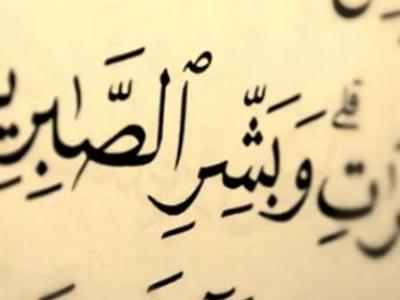 وَبَشِّرِ ٱلصَّٰبِرِي